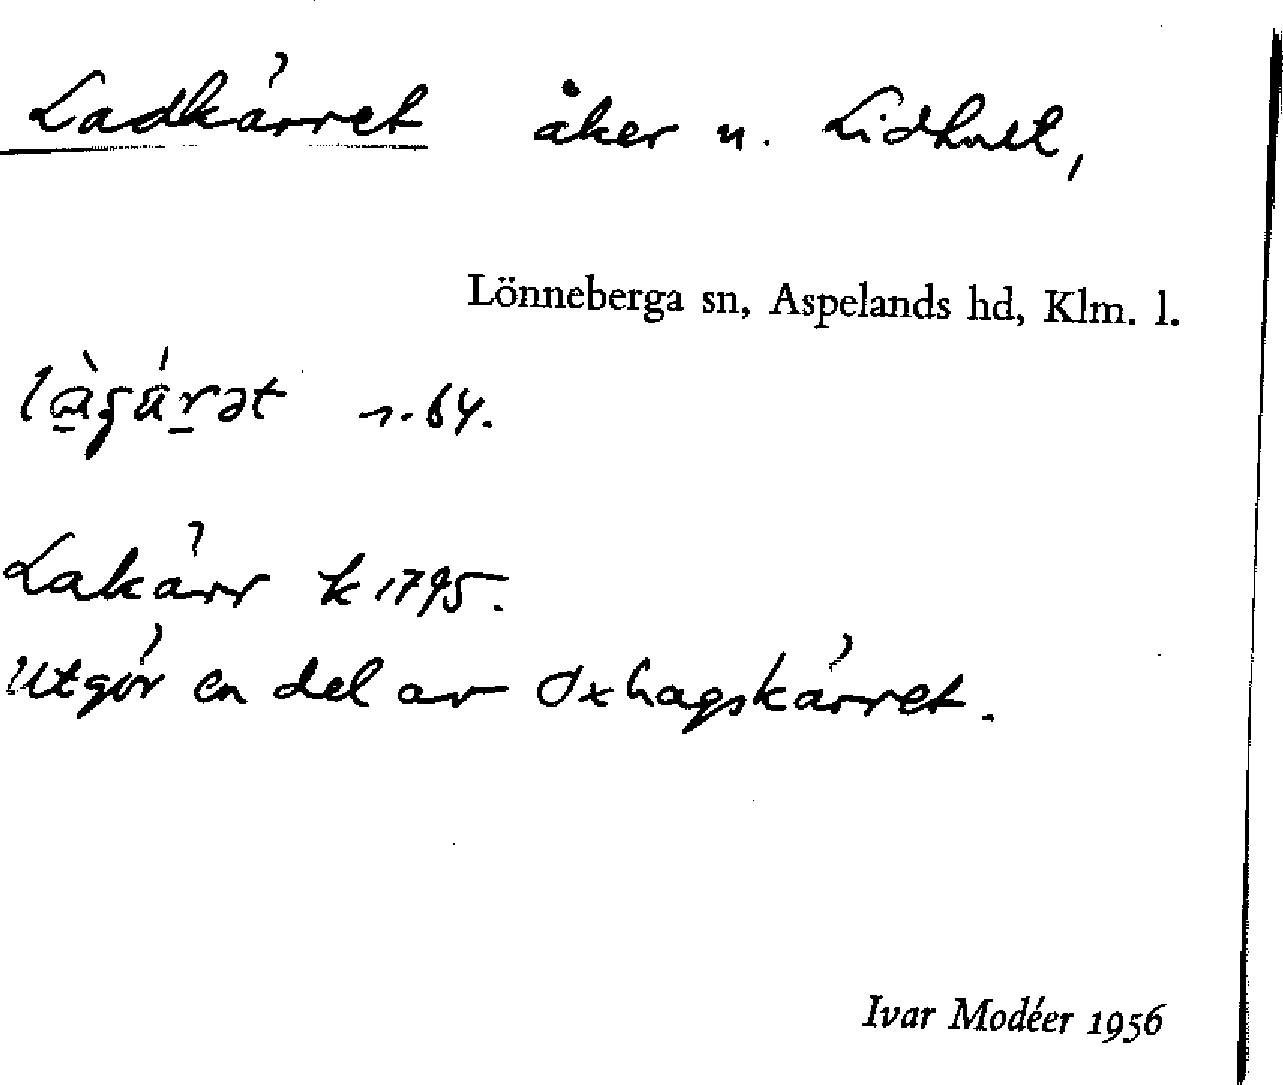 Ladkärret åker n. Lidhult,
Lönneberga sn, Aspelands hd, Klm. l.
r. 64.
Lakärr k 1795.
Utgör en del av Oxhagskärret.
Ivar Modéer 1956